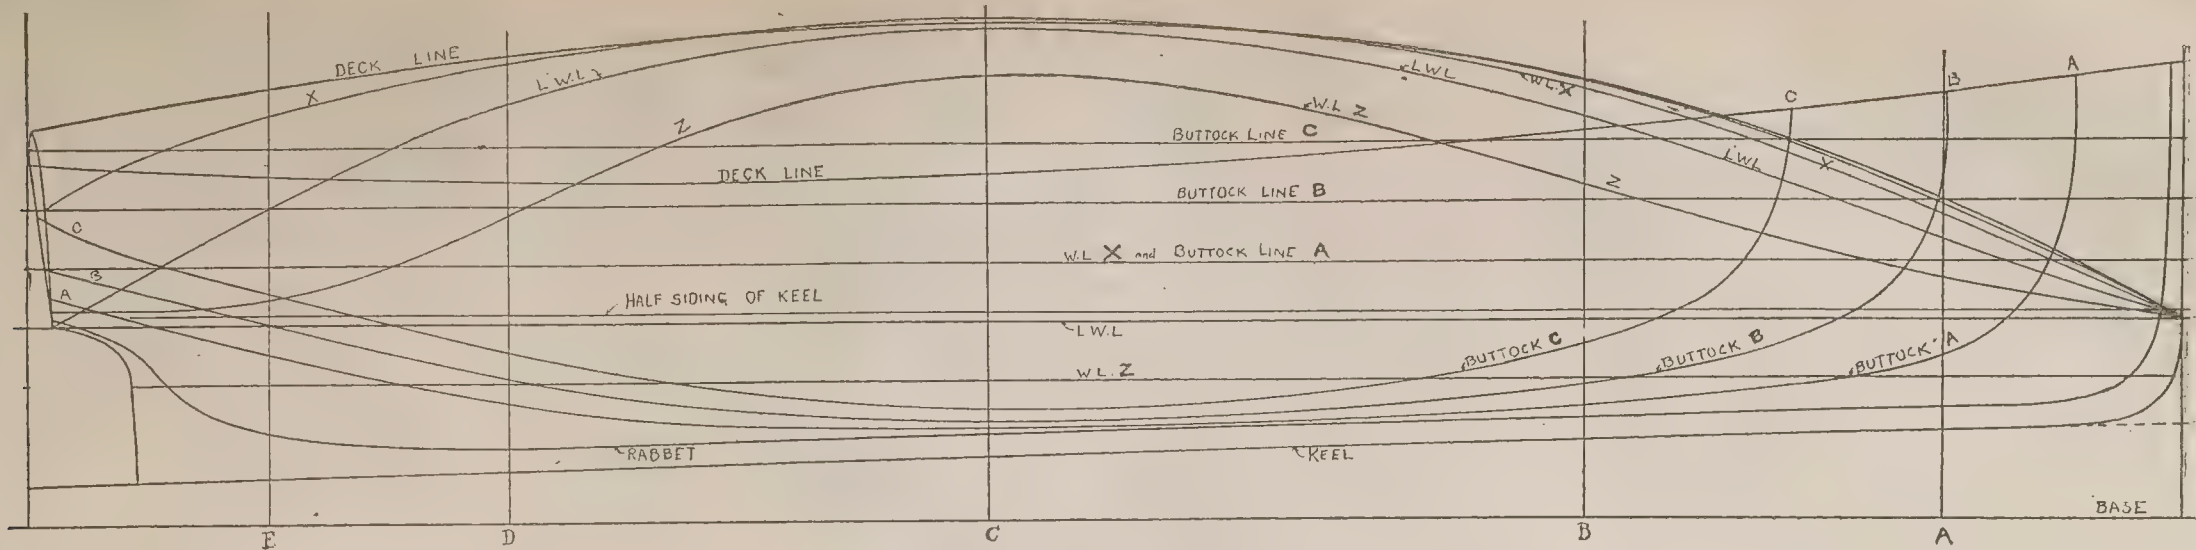 DECK LINE
X
L.W.L
Z
W.L Z
LWL
WL.X
C
B
A
BUTTOCK LINE C
DECK LINE
LWL
X
Z
BUTTOCK LINE B
C
W.L X and BUTTOCK LINE A
B
A
HALF SIDING OF KEEL
L.W.L
BUTTOCK C
BUTTOCK B
BUTTOCK A
WL.Z
RABBET
KEEL
BASE
E
D
C
B
A